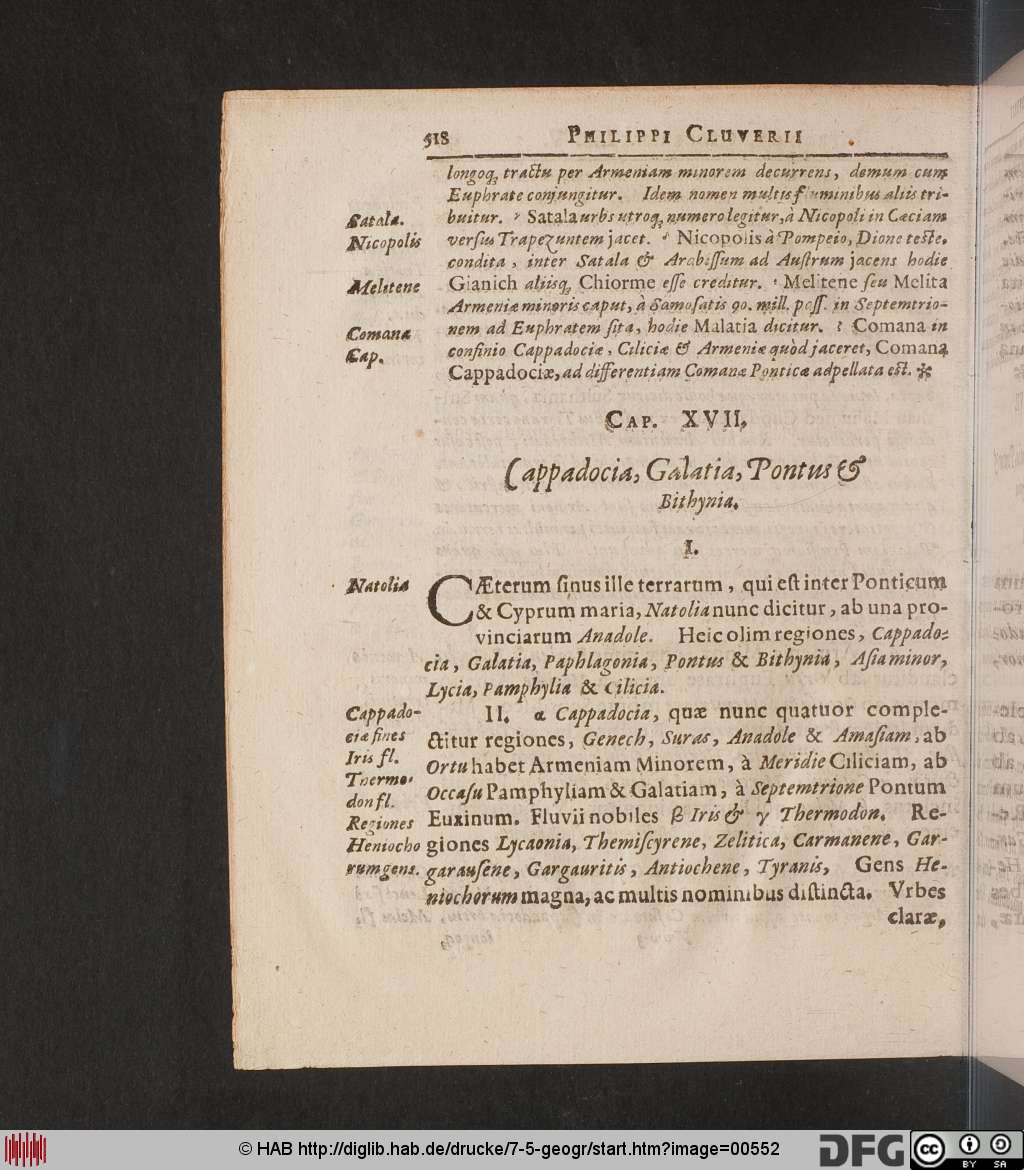 518 PHILIPPI CLUVERII
longoq; tractu per Armeniam minorem decurrens, demum cum
Euphrate conjungitur. Idem nomen multis fluminibus aliis tri-
Satala.
buitur. Satala urbs utroq; numero legitur, à Nicopoli in Cæciam
Nicopolis
versus Trapezuntem jacet. Nicopolis à Pompeio, Dione teste,
condita, inter Satala & Arabissum ad Austrum jacens hodie
Melitene
Gianich aliisq; Chiorme esse creditur. Melitene seu Melita
Armeniæ minoris caput, à Samosatis 90. mill. pass. in Septemtrio-
Comana
nem ad Euphratem sita, hodie Malatia dicitur. Comana in
Cap.
confinio Cappadociæ, Ciliciæ & Armeniæ quòd jaceret, Comana
Cappadociæ, ad differentiam Comanæ Ponticæ adpellata est. *
CAP. XVII.
Cappadocia, Galatia, Pontus &
Bithynia.
I.
Natolia
CÆterum sinus ille terrarum, qui est inter Ponticum
& Cyprum maria, Natolia nunc dicitur, ab una pro-
vinciarum Anadole. Heic olim regiones, Cappado-
cia, Galatia, Paphlagonia, Pontus & Bithynia, Asia minor,
Lycia, Pamphylia & Cilicia.
Cappado-
II. α Cappadocia, quæ nunc quatuor comple-
ciæ fines
ctitur regiones, Genech, Suras, Anadole & Amasiam, ab
Iris fl.
Ortu habet Armeniam Minorem, à Meridie Ciliciam, ab
Thermo-
don fl.
Occasu Pamphyliam & Galatiam, à Septemtrione Pontum
Regiones
Euxinum. Fluvii nobiles β Iris & γ Thermodon. Re-
Heniocho
giones Lycaonia, Themiscyrene, Zelitica, Carmanene, Gar-
rum gens.
garausene, Gargauritis, Antiochene, Tyranis, Gens He-
niochorum magna, ac multis nominibus distincta. Vrbes
claræ,
© HAB http://diglib.hab.de/drucke/7-5-geogr/start.htm?image=00552
DFG
cc BY SA